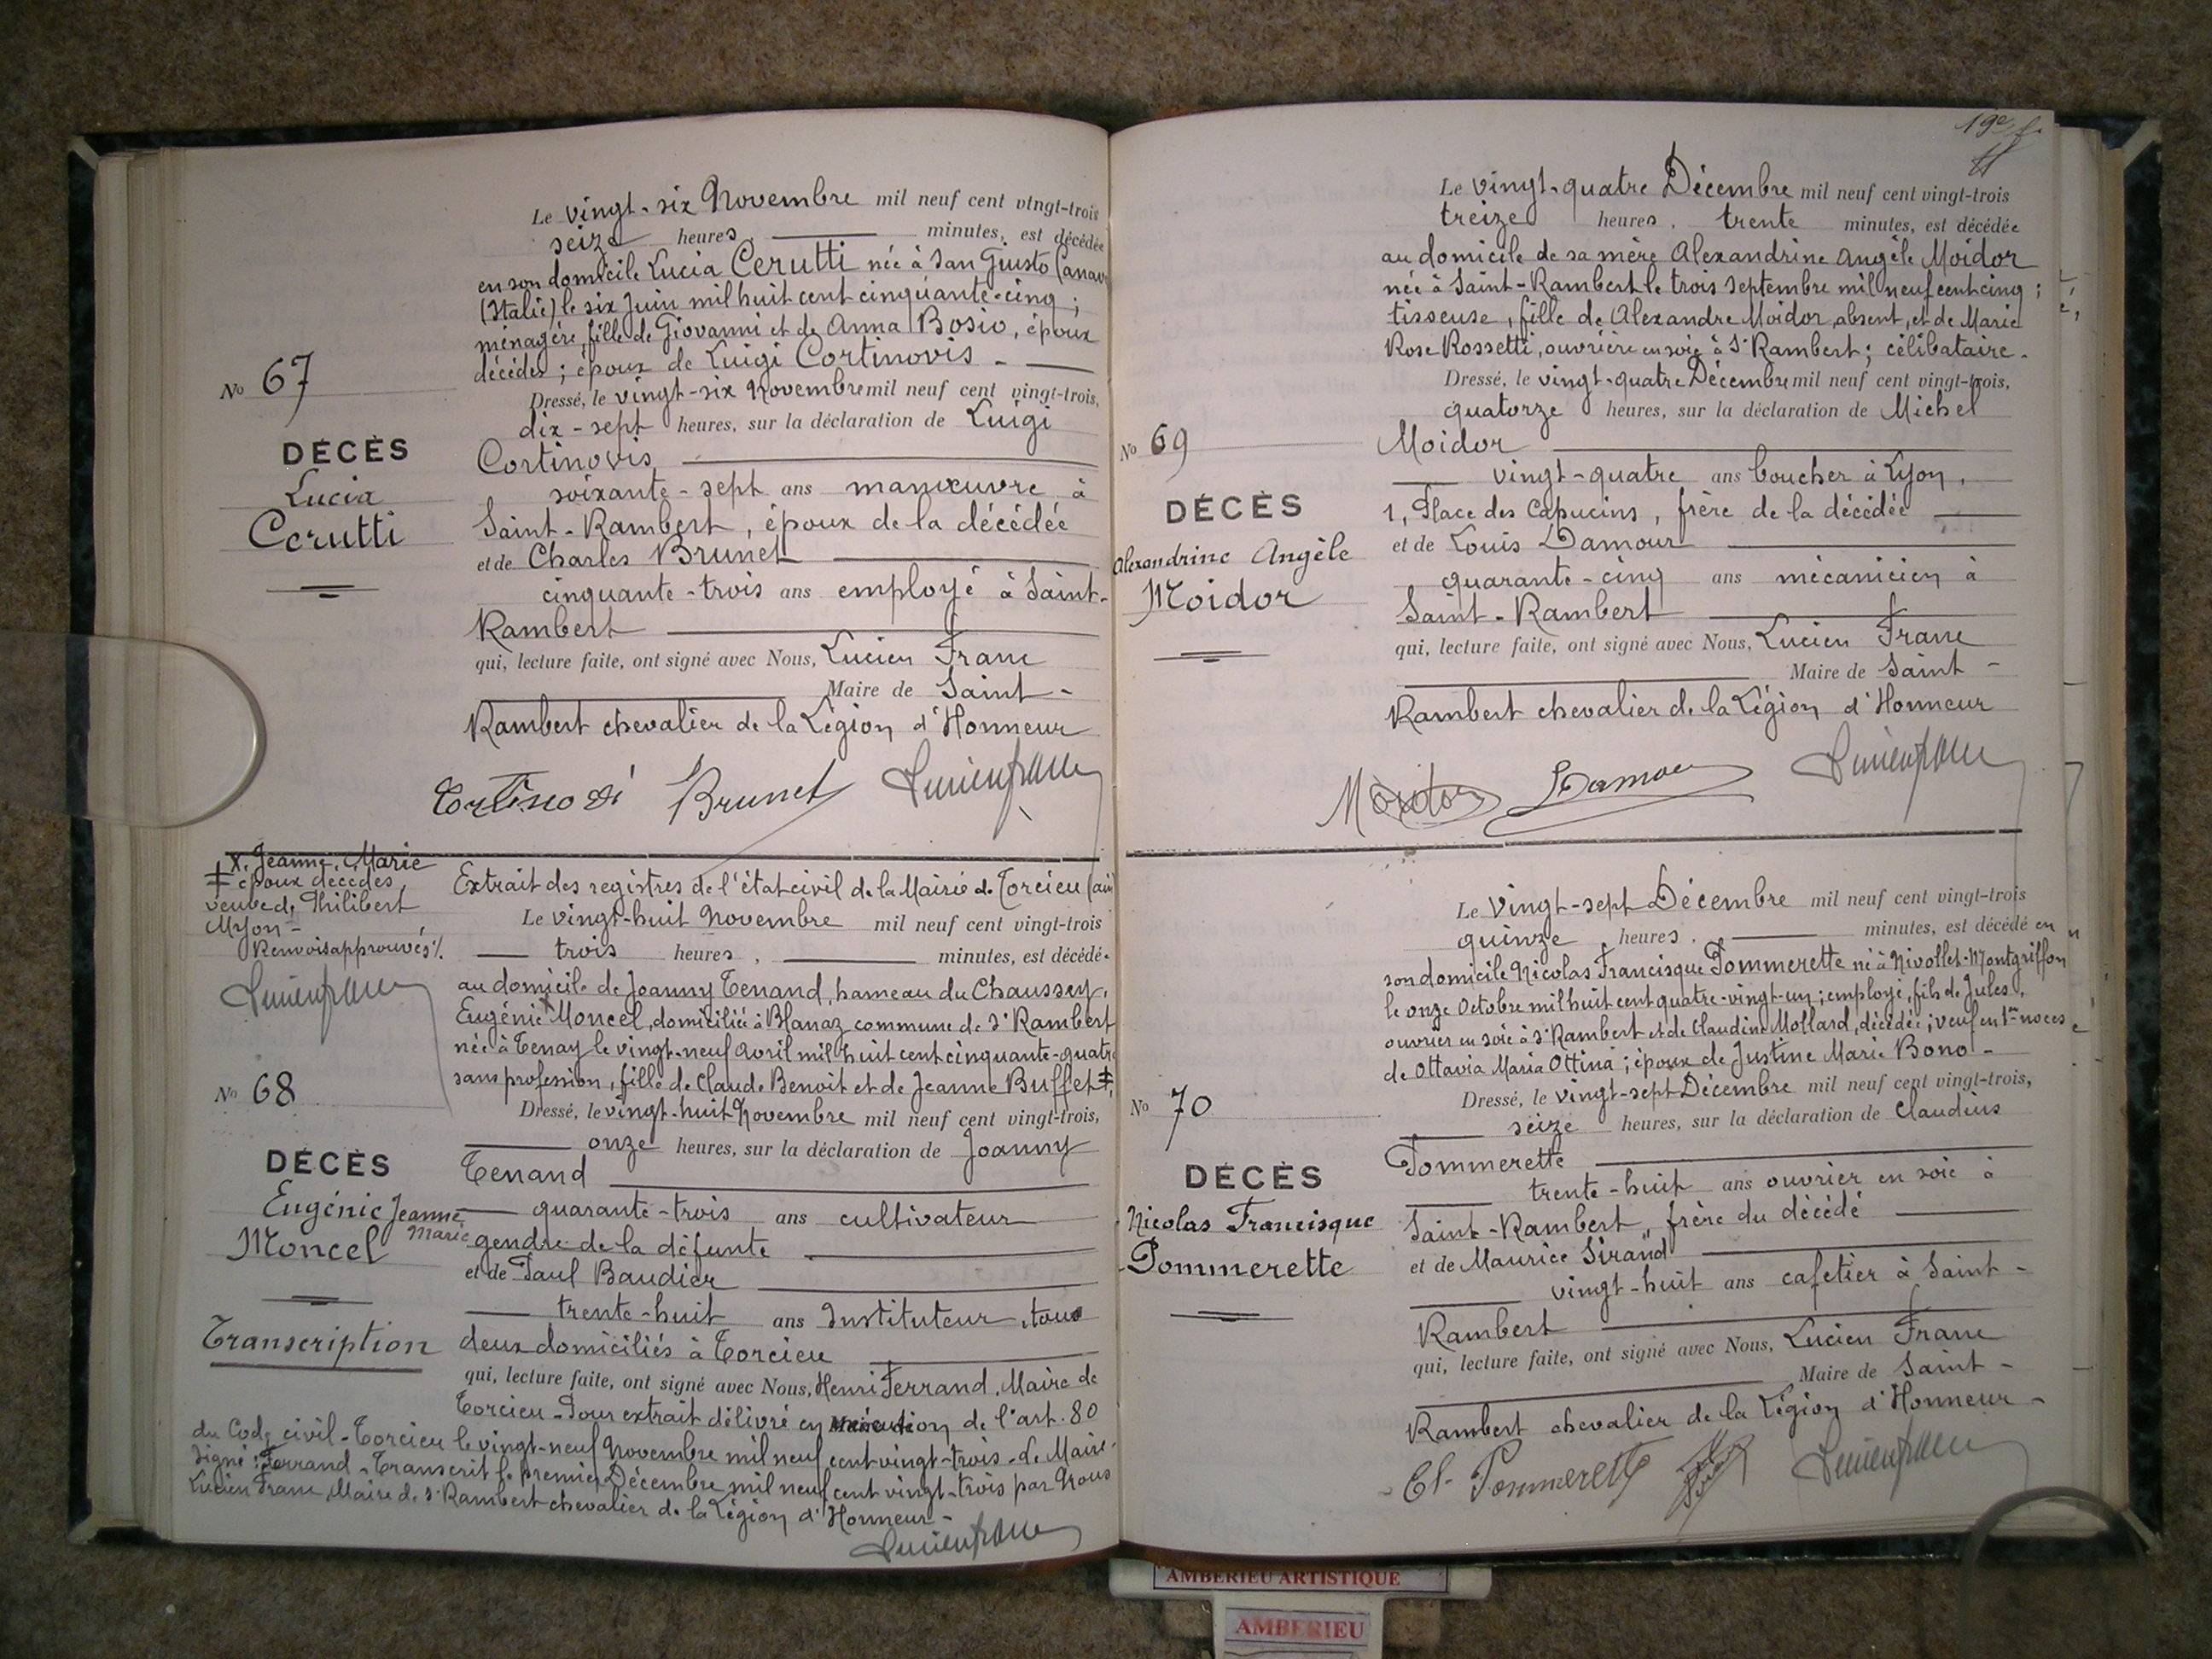 Le vingt-six Novembre mil neuf cent vingt-trois
seize heures, minutes, est décédée
en son domicile Lucia Cerutti née à San Giusto Canav
(Italie) le six Juin mil huit cent cinquante-cinq ;
ménagère, fille de Giovanni et de Anna Bosio, époux
décédés ; époux de Luigi Cortinovis -
Dressé, le vingt-six Novembre mil neuf cent vingt-trois,
dix-sept heures, sur la déclaration de Luigi
Cortinovis
soixante-sept ans manœuvre à
Saint-Rambert, époux de la décédée
et de Charles Brunet
cinquante-trois ans employé à Saint-
Rambert
qui, lecture faite, ont signé avec Nous, Lucien Franc
Maire de Saint-
Rambert chevalier de la Légion d'Honneur
Brunet Lucien Franc
No 67
DÉCÈS
Lucia
Cerutti
x. Jeanne. Marie
‡ époux décédés,
veuve de Philibert
Myon -
Renvois approuvés %.
Lucien Franc
No 68
DÉCÈS
Eugénie Jeanne
Marie
Moncel
Transcription
Extrait des registres de l'état civil de la Mairie de Torcieu (ain)
Le vingt-huit Novembre mil neuf cent vingt-trois
trois heures, minutes, est décédé.
au domicile de Joanny Tenand, hameau du Chaussey,
Eugénie x Moncel, domiciliée à Blanaz commune de St Rambert
née à Tenay le vingt-neuf avril mil huit cent cinquante-quatre
sans profession, fille de Claude Benoit et de Jeanne Buffet ‡,
Dressé, le vingt-huit Novembre mil neuf cent vingt-trois,
onze heures, sur la déclaration de Joanny
Tenand
quarante-trois ans cultivateur
gendre de la défunte
et de Paul Baudier
trente-huit ans Instituteur, tous
deux domiciliés à Torcieu
qui, lecture faite, ont signé avec Nous, Henri Ferrand, Maire de
Torcieu - Pour extrait délivré en exécution de l'art. 80
du Code civil - Torcieu le vingt-neuf Novembre mil neuf cent vingt-trois - le Maire -
Signé : Ferrand - Transcrit le premier Décembre mil neuf cent vingt-trois par Nous
Lucien Franc, Maire de St Rambert chevalier de la Légion d'Honneur -
Lucien Franc
19e f.
Le vingt-quatre Décembre mil neuf cent vingt-trois
treize heures, trente minutes, est décédée
au domicile de sa mère Alexandrine Angèle Moidor
née à Saint-Rambert le trois Septembre mil neuf cent cinq ;
tisseuse, fille de Alexandre Moidor, absent, et de Marie
Rose Rossetti, ouvrière en soie à St Rambert ; célibataire.
Dressé, le vingt-quatre Décembre mil neuf cent vingt-trois,
quatorze heures, sur la déclaration de Michel
Moidor
vingt-quatre ans boucher à Lyon,
1, Place des Capucins, frère de la décédée
et de Louis Damour
quarante-cinq ans mécanicien à
Saint-Rambert
qui, lecture faite, ont signé avec Nous, Lucien Franc
Maire de Saint-
Rambert chevalier de la Légion d'Honneur
Moidor Damour Lucien Franc
No 69
DÉCÈS
Alexandrine Angèle
Moidor
Le Vingt-sept Décembre mil neuf cent vingt-trois
quinze heures, minutes, est décédé en
son domicile Nicolas Francisque Pommerette né à Nivollet-Montgriffon
le onze Octobre mil huit cent quatre-vingt-un ; employé, fils de Jules,
ouvrier en soie à St Rambert et de Claudine Mollard, décédée ; veuf en 1res noces
de Ottavia Maria Ottina ; époux de Justine Marie Bono -
Dressé, le vingt-sept Décembre mil neuf cent vingt-trois,
seize heures, sur la déclaration de Claudius
Pommerette
trente-huit ans ouvrier en soie à
Saint-Rambert, frère du décédé
et de Maurice Sirand
vingt-huit ans cafetier à Saint-
Rambert
qui, lecture faite, ont signé avec Nous, Lucien Franc
Maire de Saint-
Rambert chevalier de la Légion d'Honneur -
Cl. Pommerette Lucien Franc
No 70
DÉCÈS
Nicolas Francisque
Pommerette
AMBERIEU ARTISTIQUE
AMBERIEU